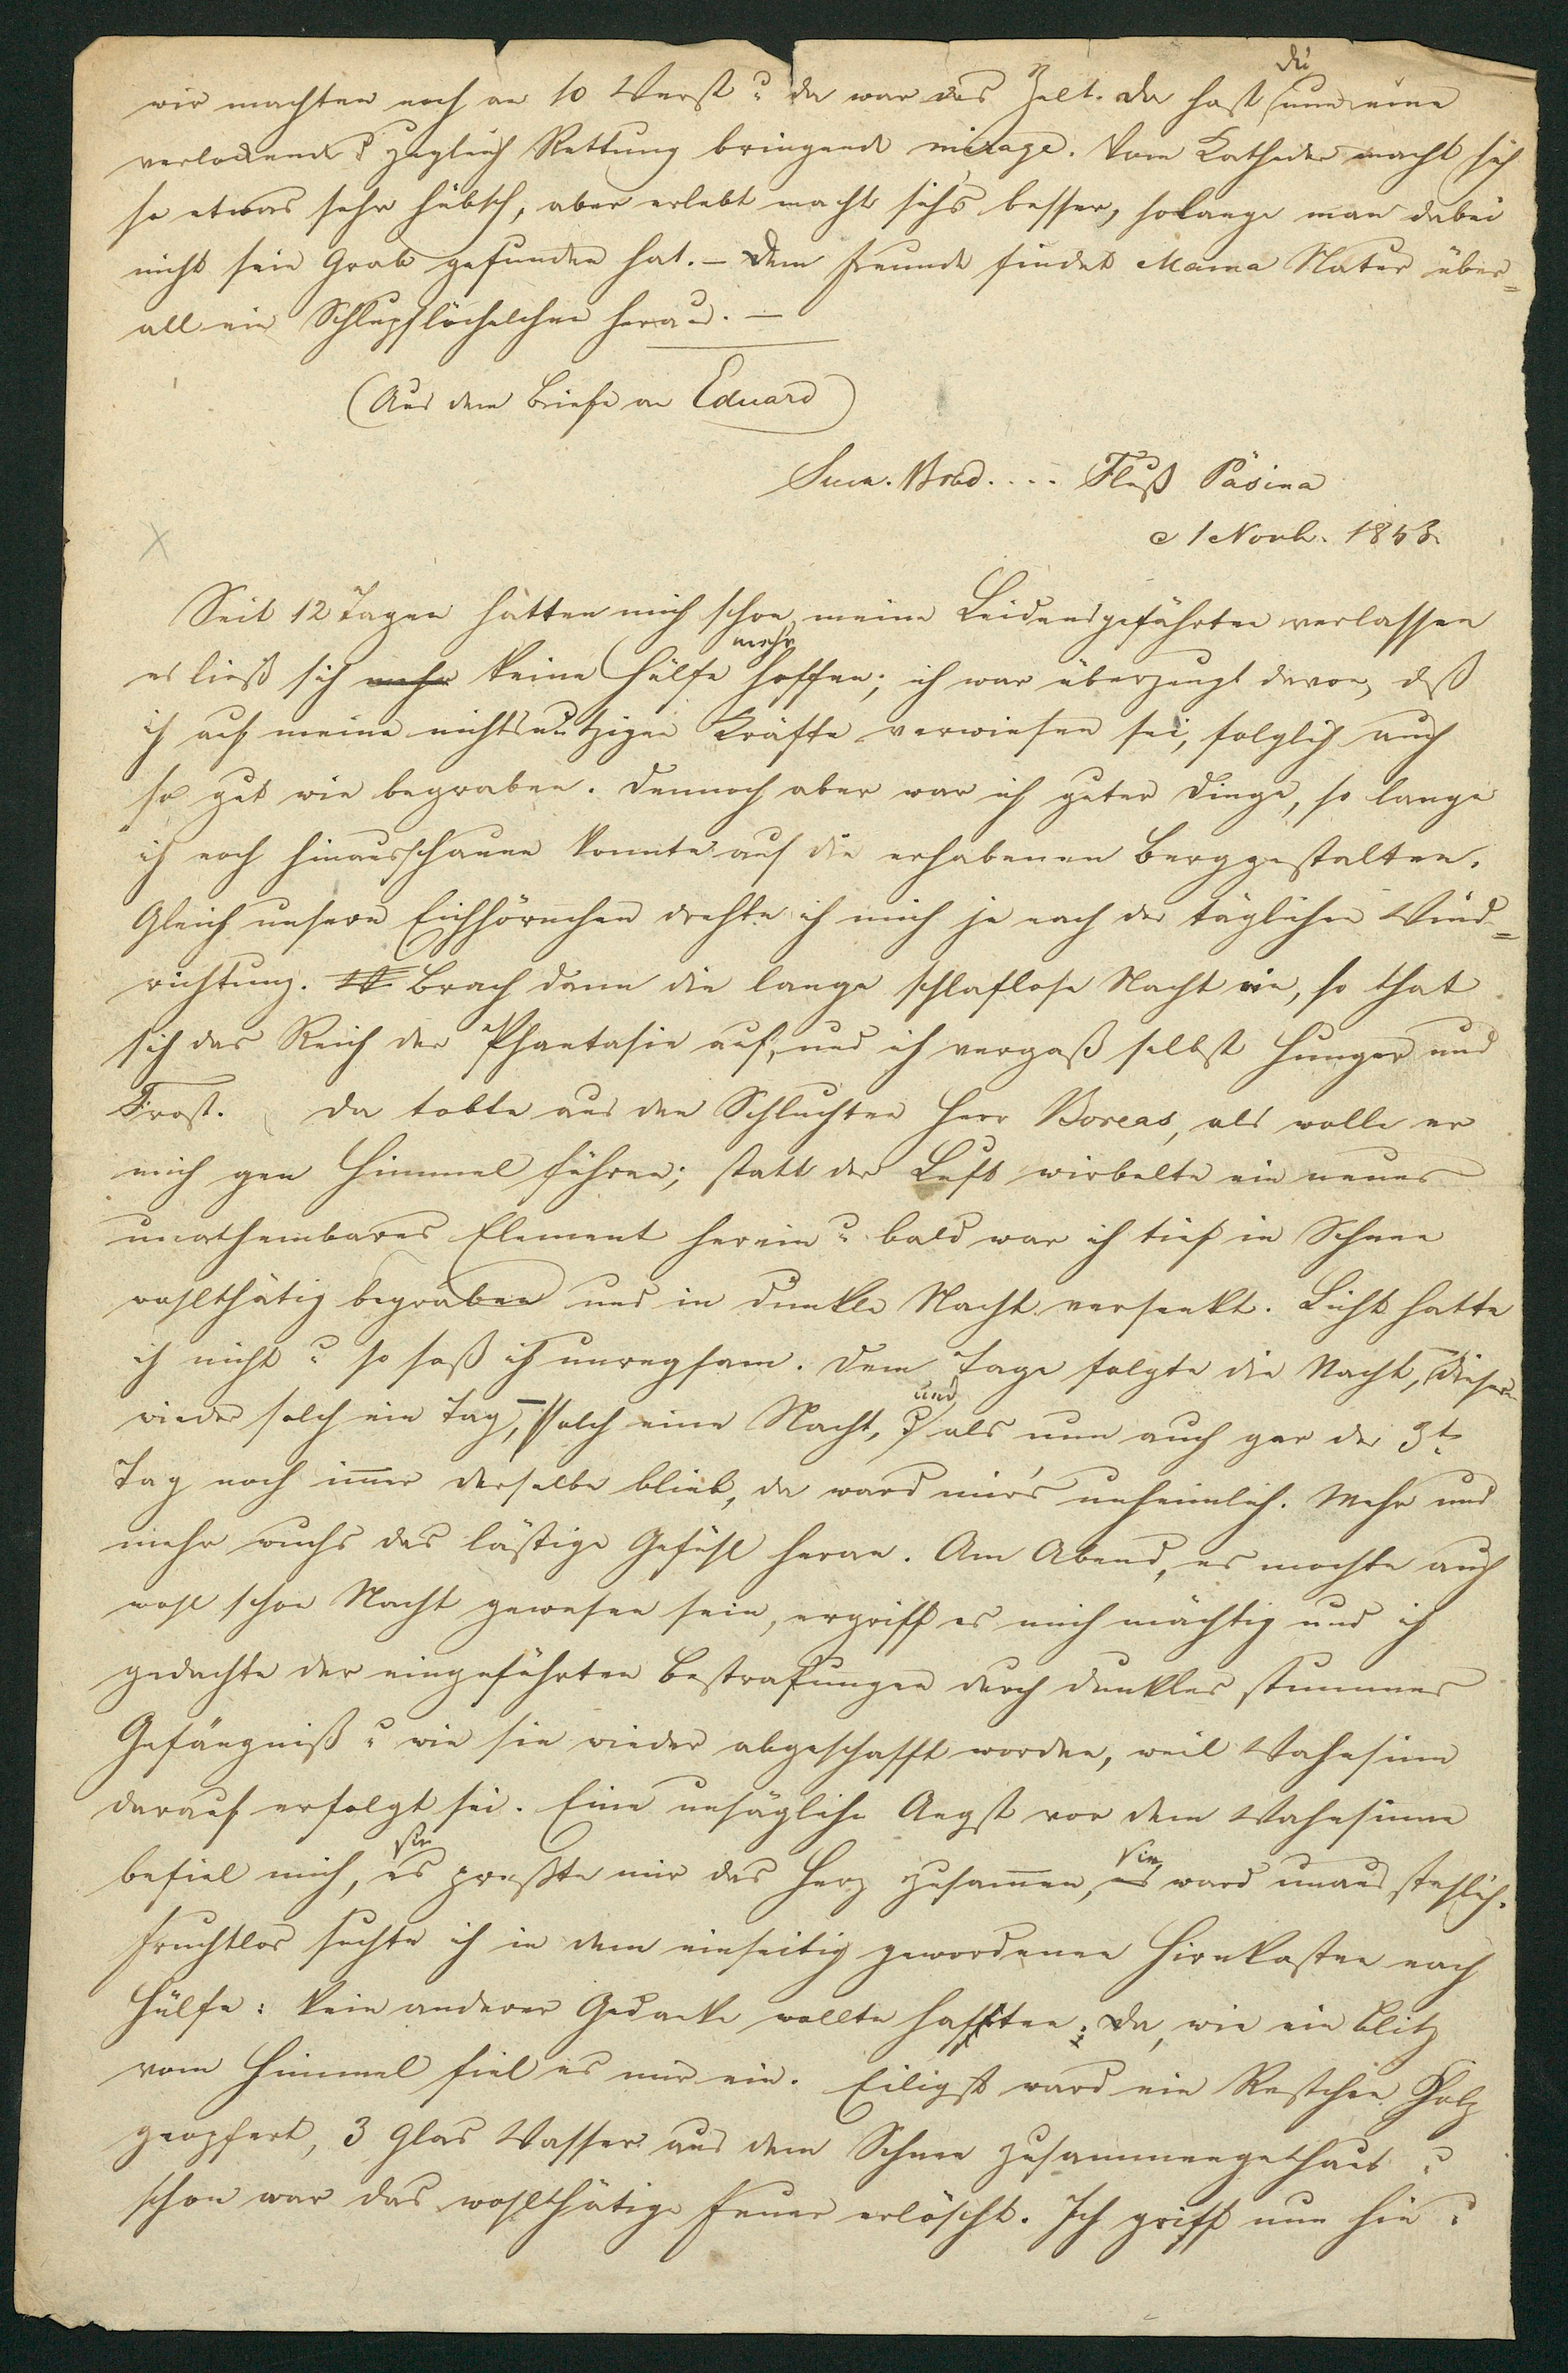 wir machten noch an 10 Werst u da war das Zelt. Da hast du nun eine
verlockende u zugleich Rettung bringende mirage. Vom Katheder macht sich
so etwas sehr hübsch, aber erlebt macht sich's besser, solange man dabei
nicht sein Grab gefunden hat. – Dem Freunde findet Mama Natur über=
all ein Schlupflöchelchen heraus. –
(Aus dem Briefe an Eduard)
Brod.... Fluß Päsina
1 Novb. 1843.
Seit 12 Tagen hatten mich schon meine Leidensgefährten verlassen
es ließ sich mehr keine Hülfe mehr hoffen; ich war überzeugt davon, daß
ich auf meine nichtsnutzigen Kräfte verwiesen sei, folglich auch
so gut wie begraben. Dennoch aber war ich guter Dinge, so lange
ich noch hinausschauen konnte auf die erhabenen Berggestalten.
Gleich unsern Eichhörnchen drehte ich mich je nach der täglichen Wind=
richtung. Brach dann die lange schlaflose Nacht ein, so that
sich das Reich der Phantasie auf, und ich vergaß selbst Hunger und
Frost. Da tobte aus den Schluchten Herr Boreas, als wolle er
mich gen Himmel führen; statt der Luft wirbelte ein neues
unathembares Element herein u bald war ich tief in Schnee
wohlthätig begraben und in dunkle Nacht versenkt. Licht hatte
ich nicht u so saß ich unregsam. Dem Tage folgte die Nacht, dieser
wieder solch ein Tag, – solch eine Nacht, und als nun auch gar der 3te
Tag noch immer derselbe blieb, da ward mir's unheimlich. Mehr und
mehr wuchs das lästige Gefühl heran. Am Abend, es mochte auch
wohl schon Nacht gewesen sein, ergriff es mich mächtig und ich
gedachte der eingeführten Bestrafungen durch dunkles stummes
Gefängniß u wie sie wieder abgeschafft worden, weil Wahnsinn
darauf erfolgt sei. Eine unsägliche Angst vor dem Wahnsinne
befiel mich, sie preßte mir das Herz zusammen, sie ward unausstehlich.
Fruchtlos suchte ich in dem einseitig gewordenen Hirnkasten nach
Hülfe: kein anderer Gedanke wollte haften; Da, wie ein Blitz
vom Himmel fiel es mir ein. Eiligst ward ein Restchen Holz
geopfert, 3 Glas Wasser aus dem Schnee zusammengethaut u
schon war das wohlthätige Feuer erlöscht. Ich griff nun hin u